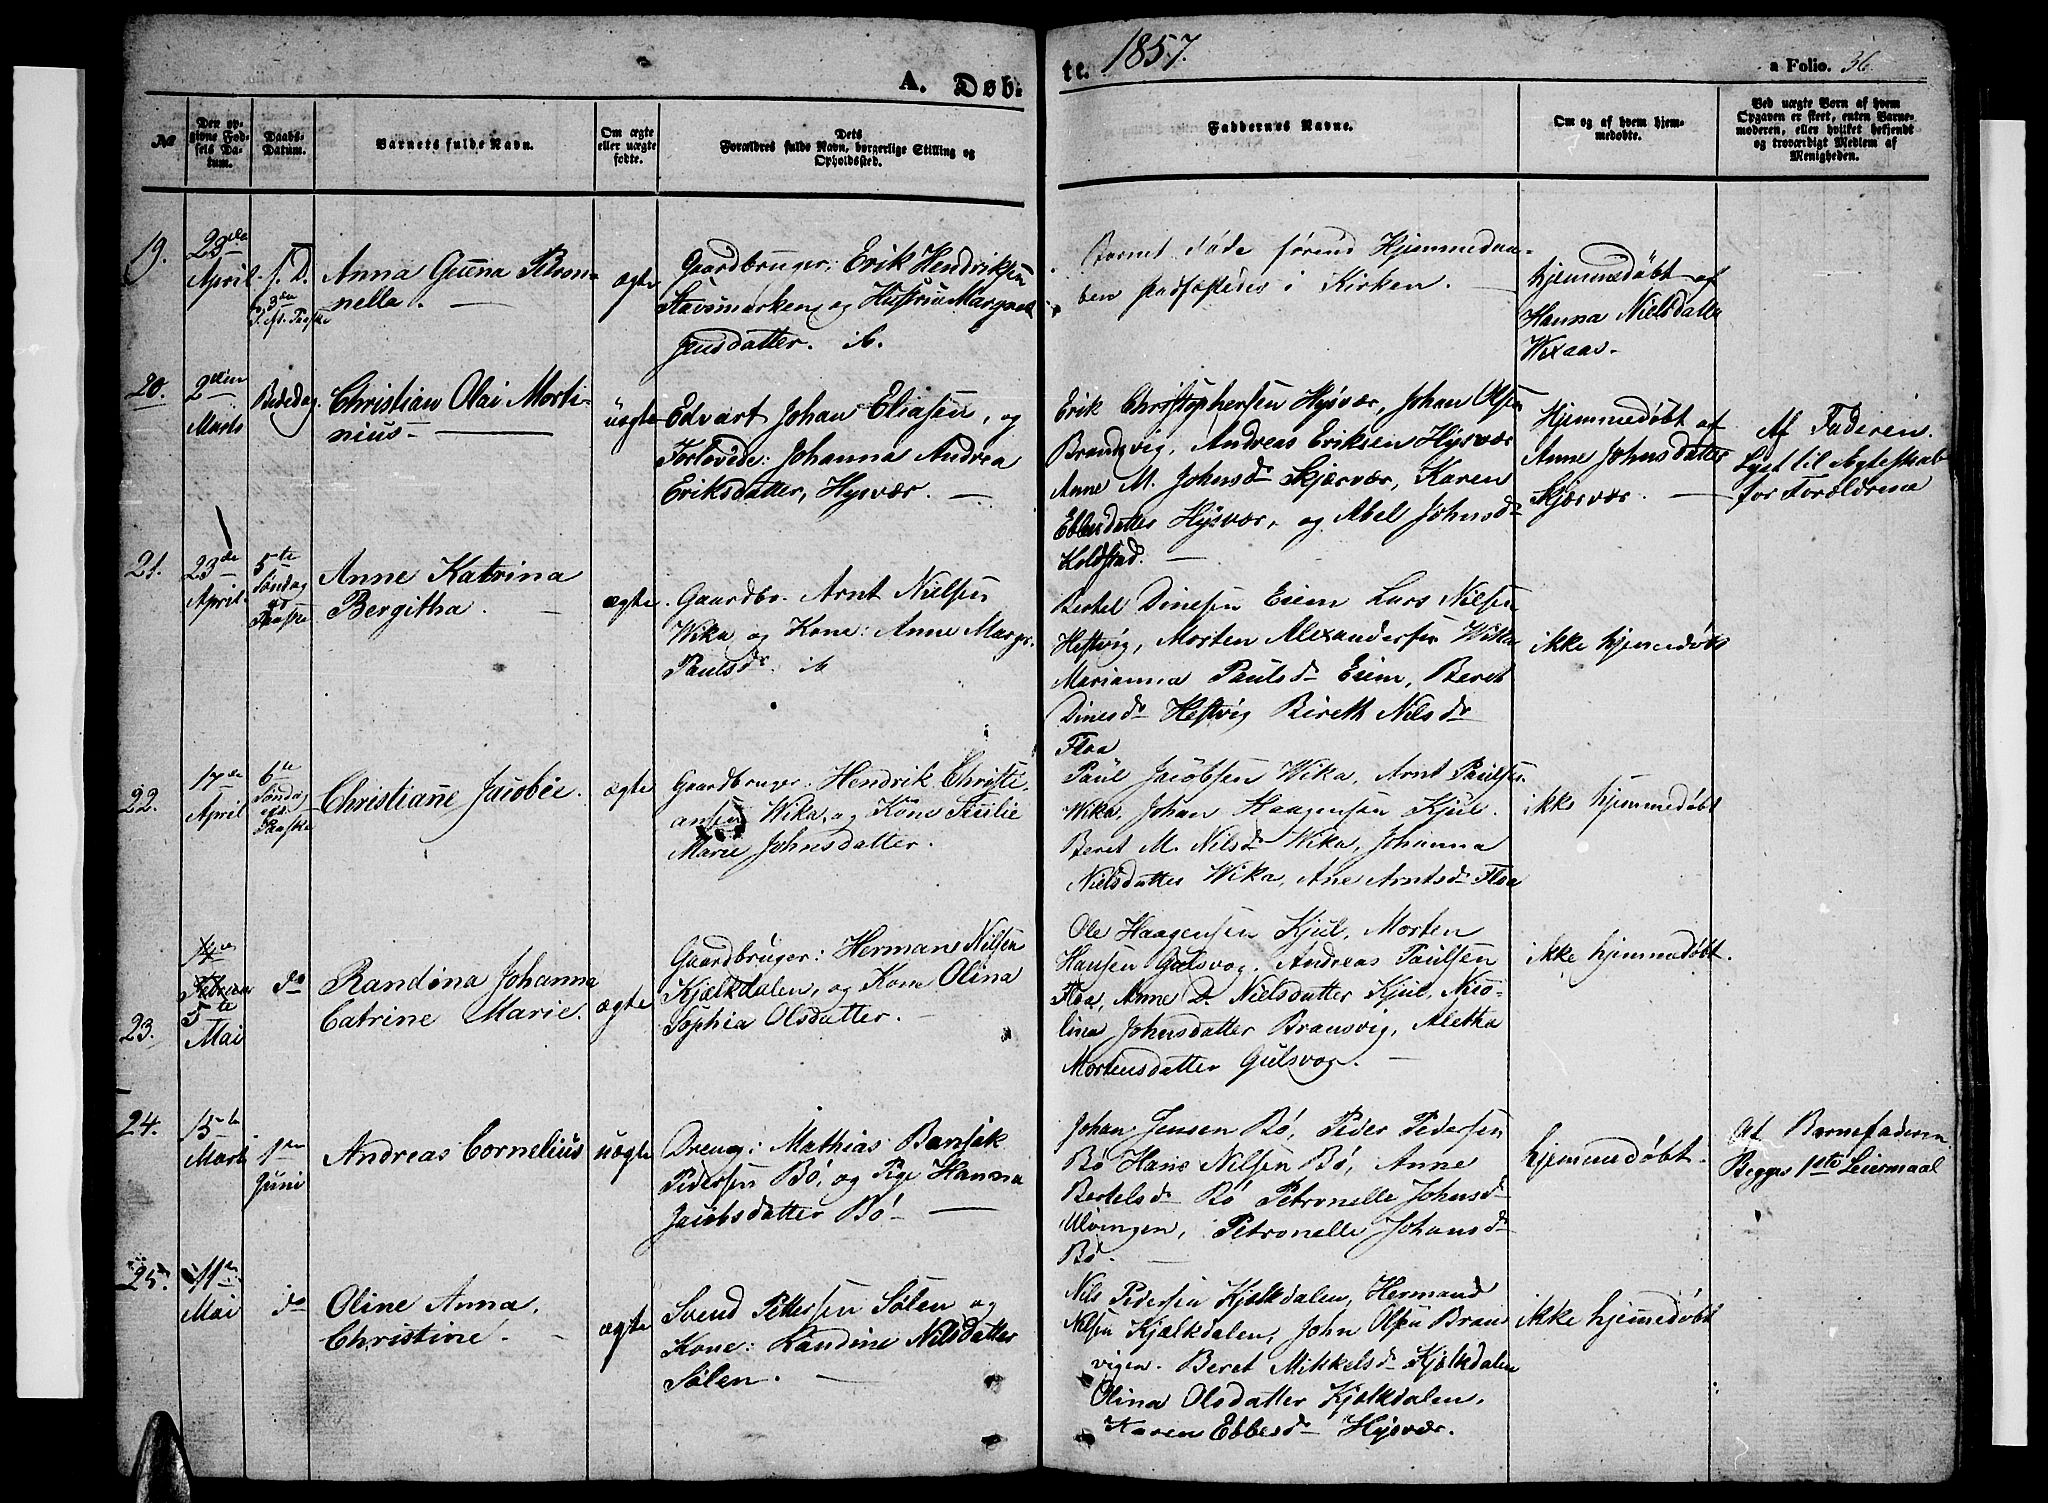 A. Døb-
te. 1857.
a Folio. 36
No
Den op-
givne Fød-
sels Da-
tum.
Daabs-
Datum.
Barnets fulde Navn.
Om ægte
eller uægte
fødte.
Dets
Forældres fulde Navn, borgerlige Stilling og
Opholdssted.
Faddernes Navne.
Om og af hvem hjem-
medøbte.
Ved uægte Børn af hvem
Opgaven er skeet, enten Barne-
moderen, eller hvilket bekjendt
og troværdigt Medlem af
Menigheden.
19.
23de
April
S. D.
3die
P. eft. Paaske
Anna Guna Petro-
nella.
ægte
Gaardbruger: Erik Hendriksen
Stavsmarken og Hustru Margret
Jensdatter. ib.
Barnet døde førend Hjemmedaa-
ben stadfæstedes i Kirken.
hjemmedøbt af
Hanna Nielsdatter
Wixaas.
20.
2den
Marts
Bededag.
Christian Olai Morti-
nius.
uægte
Edvart Johan Eliasen, og
Forlovede: Johanna Andrea
Eriksdatter, Hysvær.
Erik Christophersen Hysvær, Johan Olsen
Brandsvig, Andreas Eriksen Hysvær
Anne M. Johnsdr Skjærvær, Karen
Ebbesdatter Hysvær, og Abel Johnsdr
Koldstad.
Hjemmedøbt af
Anne Johnsdatter
Skjærvær.
Af Faderen.
Lyst til Ægteskab
for Forældrene
21.
23de
April.
5te
Søndag
ef.
Paaske
Anne Katrina
Bergitha.
ægte.
Gaardbr. Arnt Nielsen
Wika og Kone: Anne Margr.
Paulsdr. ib
Bertel Dinesen Eiem Lars Nilsen
Heftvig, Morten Alexandersen Wika
Marianna Paulsdr Eiem, Beret
Dinesdr Heftvig Bireth Nilsdr
Floa
ikke hjemmedøbt
22.
17de
April
6te
Søndag
eft.
Paaske
Christiane Jacobée.
ægte
Gaardbruger: Hendrik Christi-
ansen Wika, og Kone Sicilie
Marie Johnsdatter.
Paul Jacobsen Wika, Arnt Paulsen
Wika, Johan Haagensen Kjul.
Beret M. Nilsdr Wika, Johanna
Nielsdatter Wika, Ane Arntsdr Floa
ikke hjemmedøbt
23.
14de
Februar
5te
Mai
do
Randina Johanna
Catrine Marie.
ægte
Gaardbruger: Herman Nilsen
Kjælkdalen, og Kone Olina
Sophia Olsdatter.
Ole Haagensen Kjul, Morten
Hansen Gulsvog. Andreas Paulsen
Floa, Anne D. Nielsdatter Kjul, Nico-
lina Johnsdatter Bransvig, Aletha
Mortensdatter Gulsvog.
ikke hjemmedøbt.
24.
15de
Mart
1ste
Juni
Andreas Cornelius
uægte
Dreng: Mathias Bansak
Pedersen Bø, og Pige Hanna
Jacobsdatter Bø
Johan Jensen Bø, Peder Pedersen
Bø Hans Nilsen Bø, Anne
Bertelsdr Bø Petronelle Johnsdr
Ulvingen, Petronelle Johansdr
Bø.
hjemmedøbt.
Af Barnefaderen
Begges 1ste Leiermaal
25.
11te
Mai
do
Oline Anna
Christine.
ægte
Svend Pettersen Sølen og
Kone: Randine Nilsdatter
Sølen.
Nils Pedersen Kjælkdalen, Hermand
Nilsen Kjælkdalen, John Olsen Brans
vigen. Beret Mikkelsdr Kjælkdalen
Olina Olsdatter Kjælkdalen,
Karen Ebbesdr Hysvær.
ikke hjemmedøbt